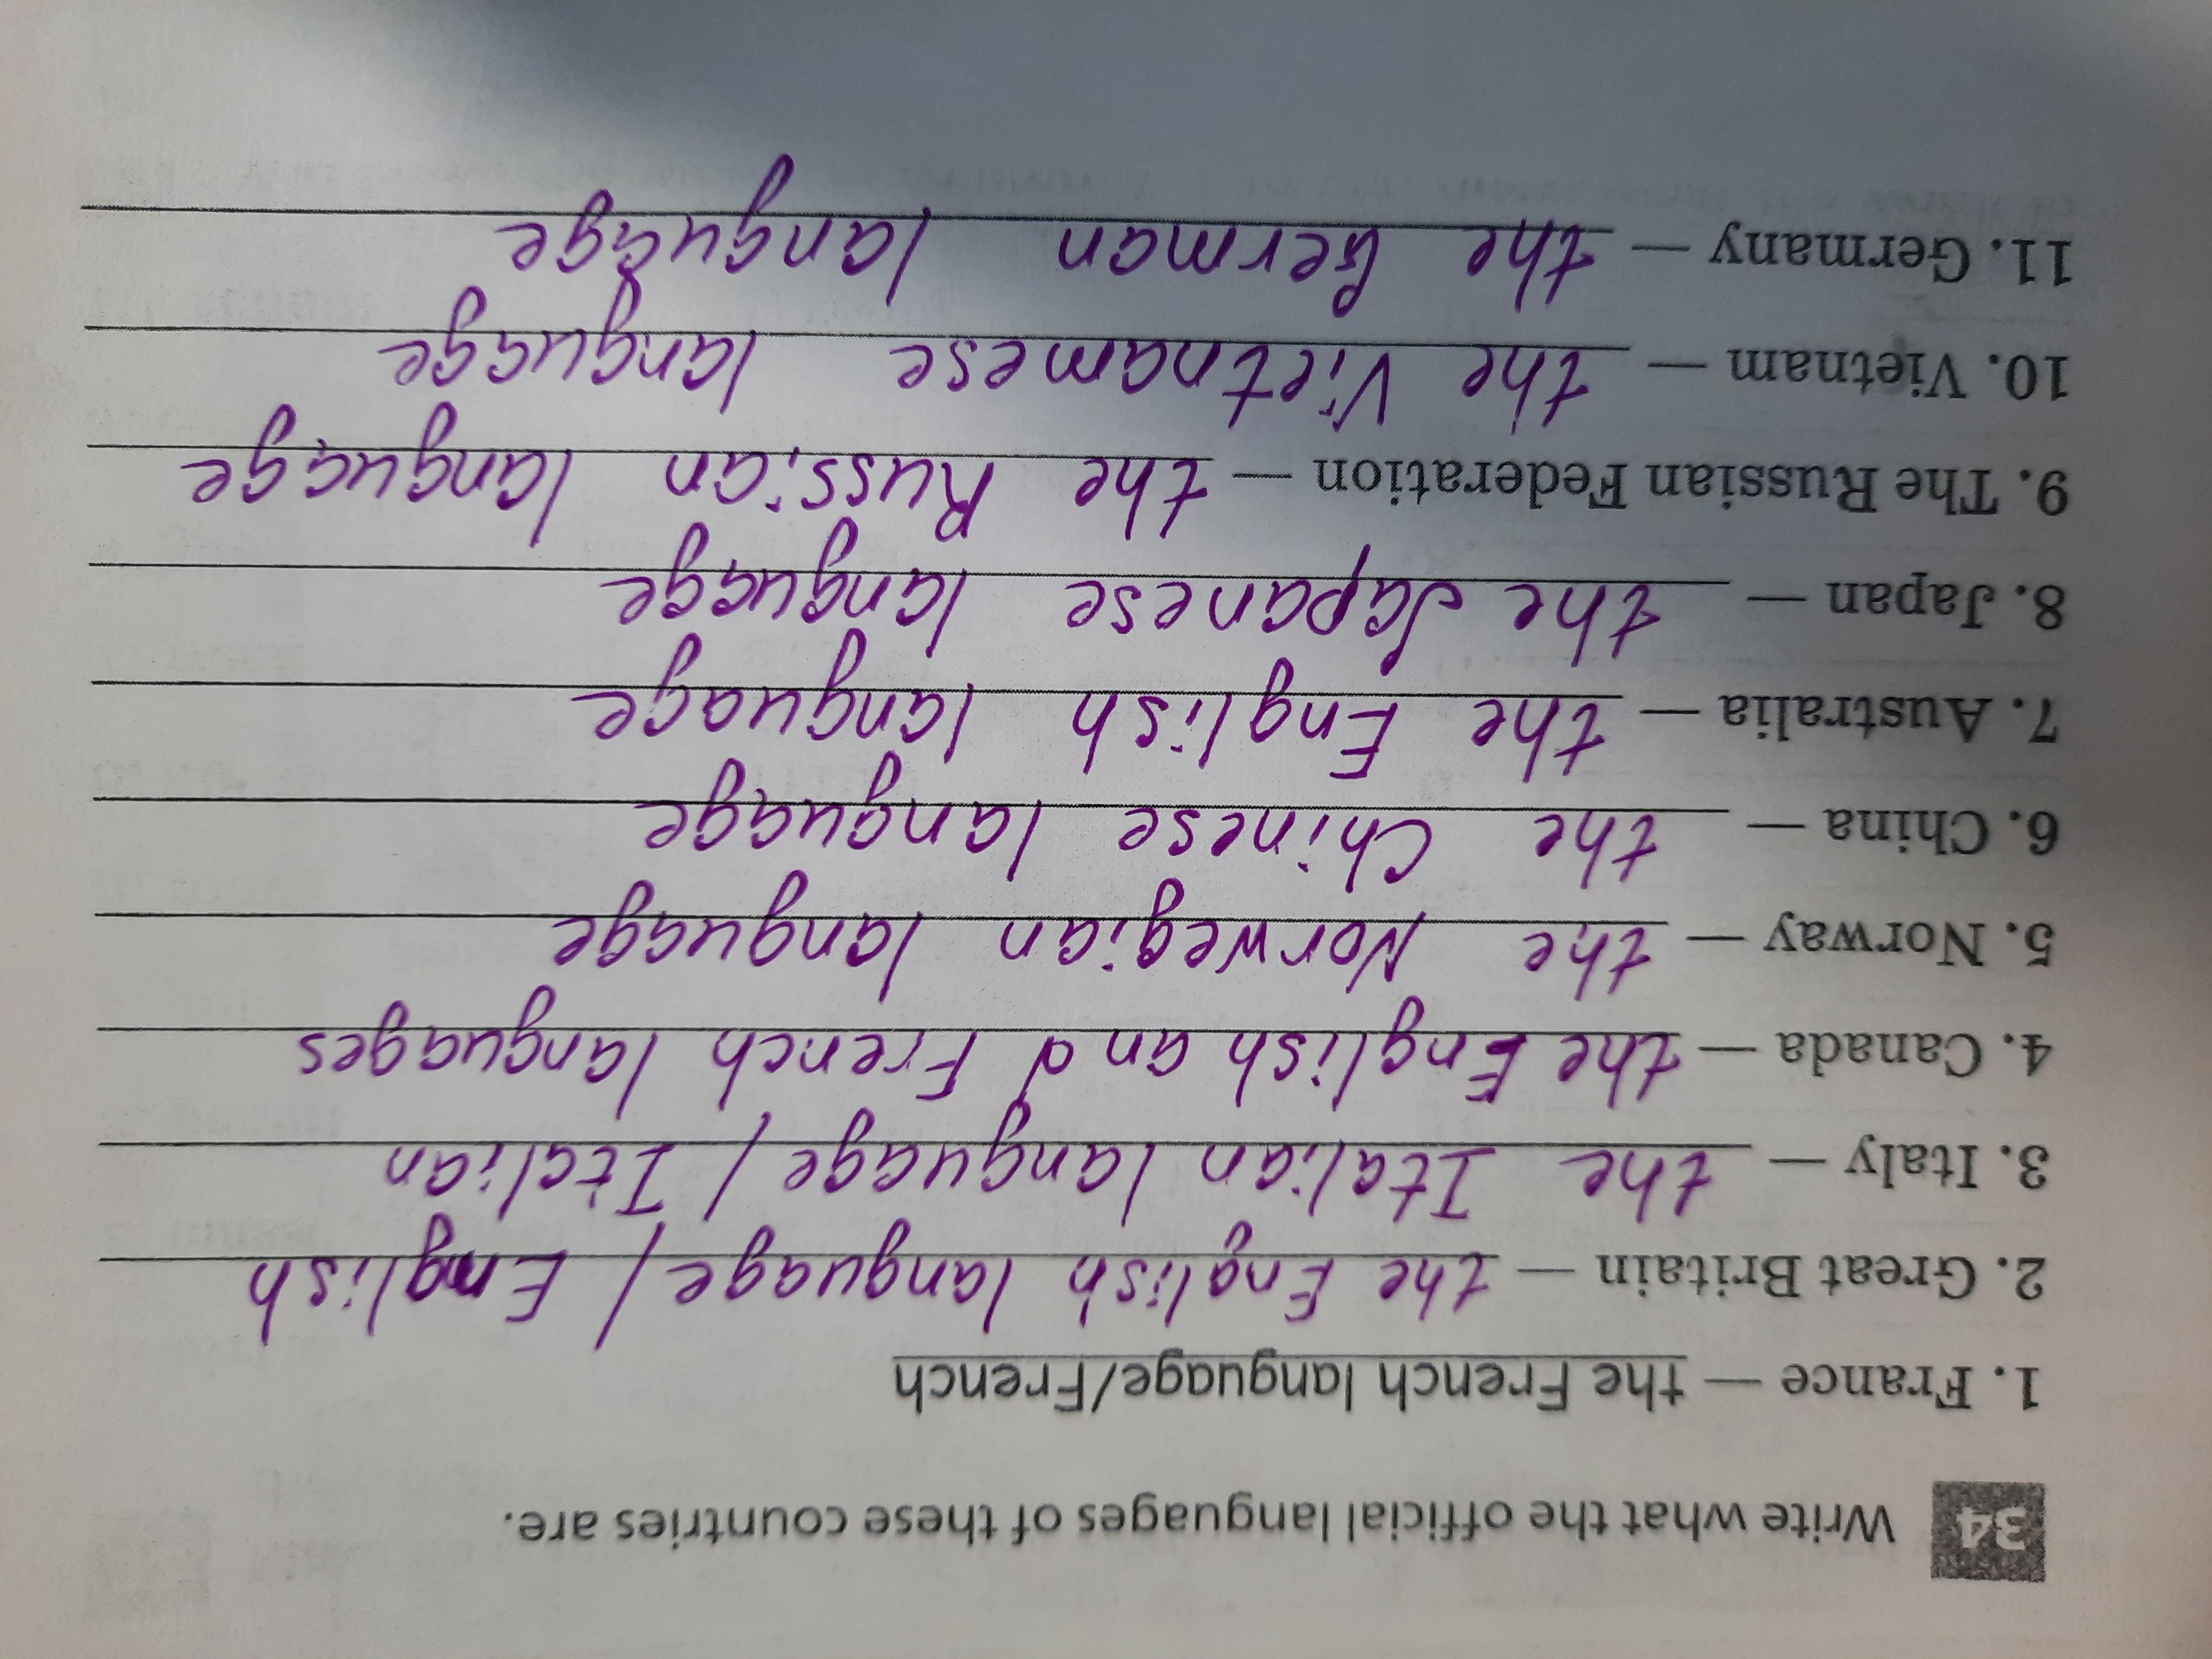 34 Write what the official languages of these countries are.
1. France — the French language/French
2. Great Britain — the English language / English
3. Italy — the Italian language / Italian
4. Canada — the English and French languages
5. Norway — the Norwegian language
6. China — the Chinese language
7. Australia — the English language
8. Japan — the Japanese language
9. The Russian Federation — the Russian language
10. Vietnam — the Vietnamese language
11. Germany — the German language